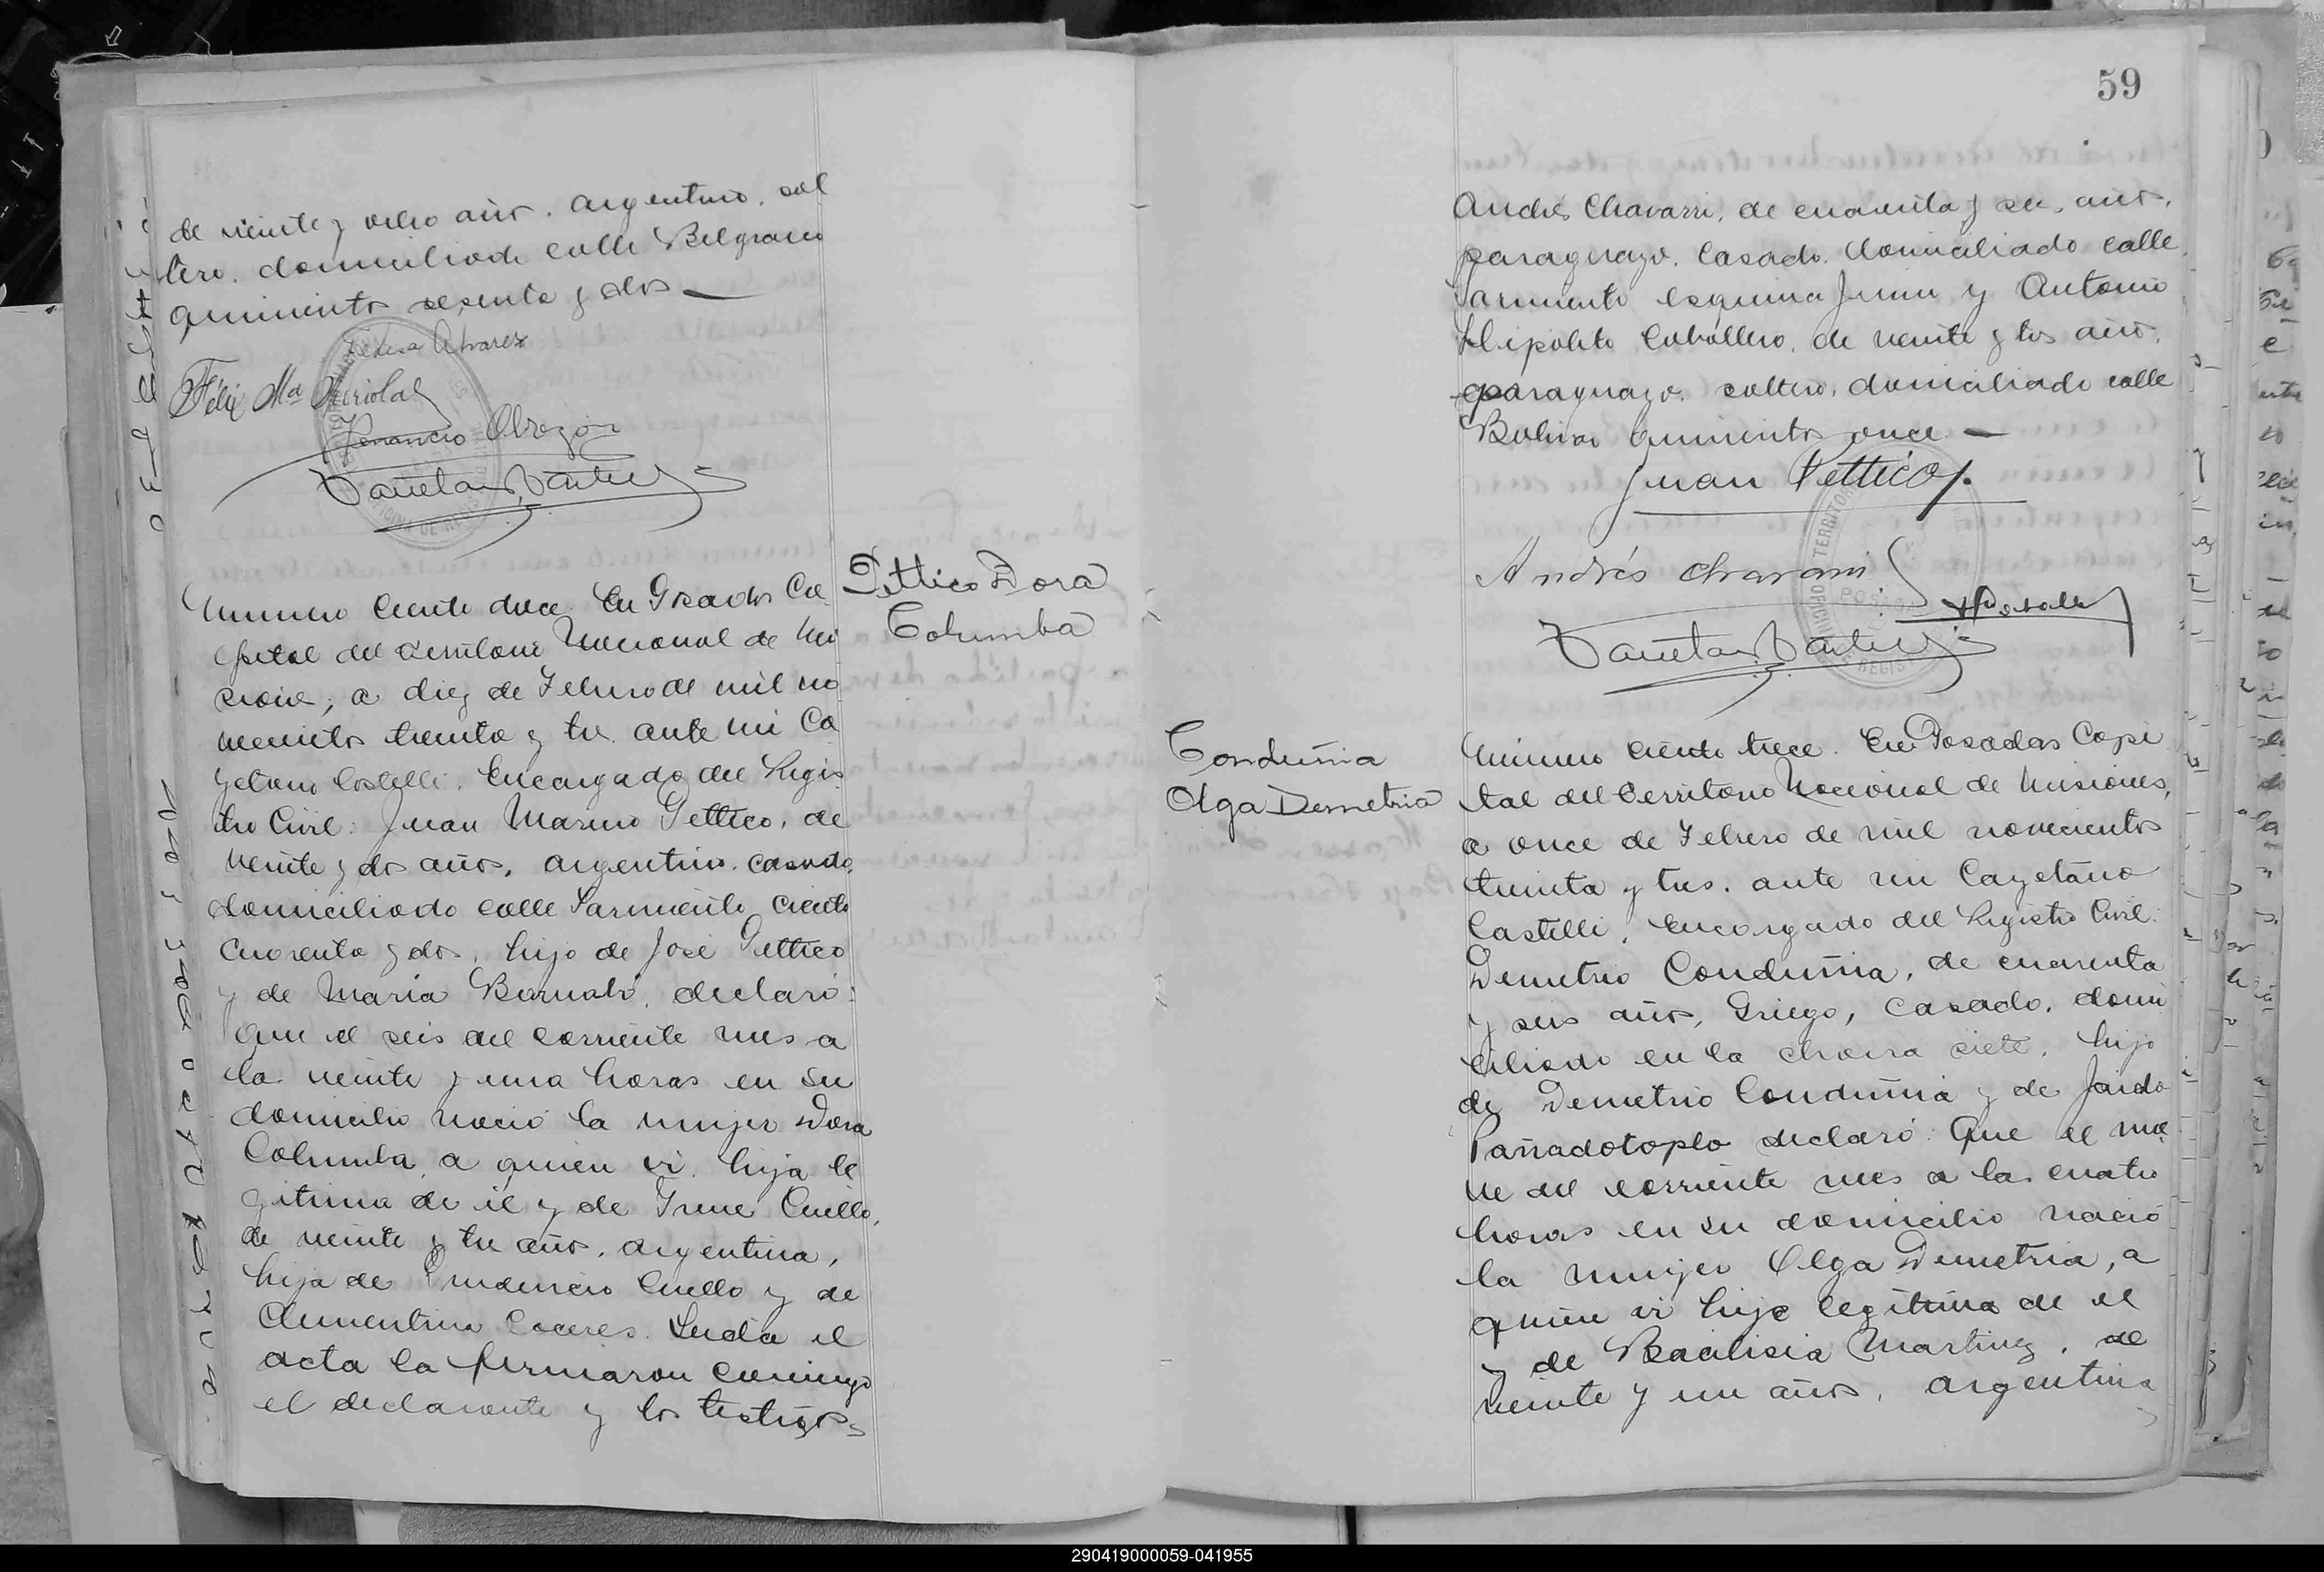 de veinte y ocho años. argentino, sol
tero. domiciliado calle Belgrano
quinientos sesenta y dos —
Teresa Alvarez
Félix Ma
Venancio Obregón
Pettico Dora
Columba
Número ciento doce. En Posadas Ca
pital del Territorio Nacional de Mi
siones, a diez de Febrero de mil no
vecientos treinta y tres. ante mi Ca
yetano Castelli. Encargado del Regis
tro Civil: Juan Marino Pettico, de
veinte y dos años, argentino. casado,
domiciliado calle Sarmiento ciento
cuarenta y dos, hijo de José Pettico
y de María declaró:
Que el seis del corriente mes a
las veinte y una horas en su
domicilio nació la mujer Dora
Columba, a quien vi. hija le
gitima de él y de Irene Cuello,
de veinte y tres años, argentina,
hija de Prudencio Cuello y de
Clementina Caceres. Leida el
acta la firmaron conmigo
el declarante y los testigos
59
Andrés Chavarri, de cuarenta y seis años,
paraguayo. casado. domiciliado calle
Sarmiento esquina Junin y Antonio
Hipólito Caballero, de veinte y tres años,
paraguayo. soltero, domiciliado calle
Bolivar quinientos once —
Juan Pettico
Andrés Chavarri
Conduñia
Olga Demetria
Número ciento trece. En Posadas Capi
tal del Territorio Nacional de Misiones,
a once de Febrero de mil novecientos
treinta y tres. ante mi Cayetano
Castelli, Encargado del Registro Civil:
Demetrio Conduñia, de cuarenta
y seis años, Griego, casado, domi
ciliado en la chacra siete, hijo
de Demetrio Conduñia y de
declaró: Que el nue
ve del corriente mes a las cuatro
horas en su domicilio nació
la mujer Olga Demetria, a
quien vi hija legitima de él
y de Bacilisia Martinez, de
veinte y un años, argentina
290419000059-041955